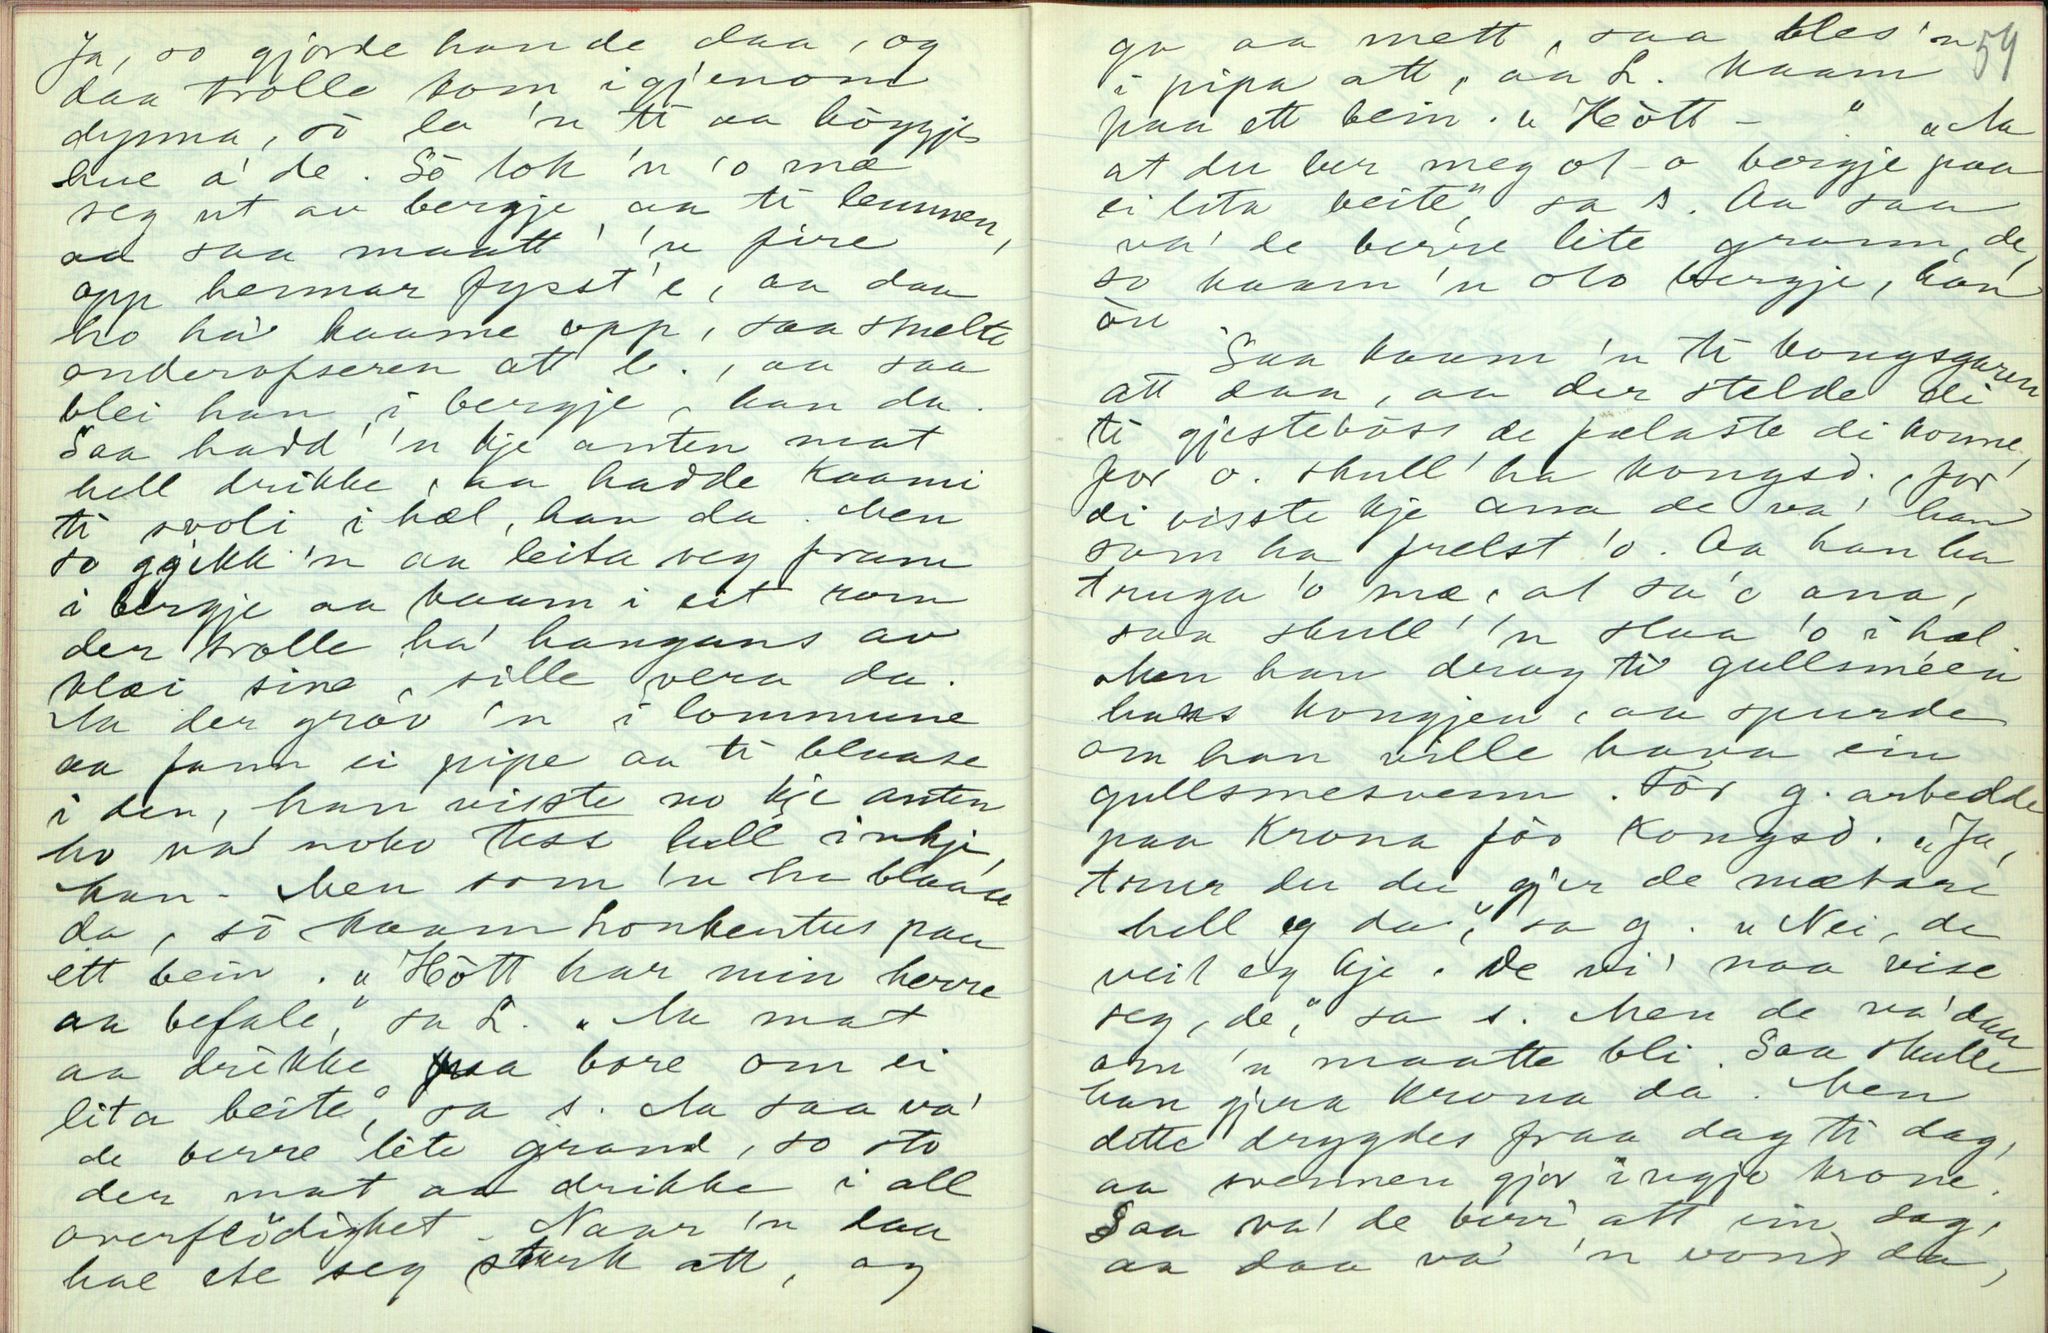 Ja, so gjorde han de daa, og
daa trolle kom igjenom
dynna, sò la 'n ti aa höggje
hue á de. Sò tok 'n 'o mæ
seg ut av bergje aa ti lemmen,
aa saa maatt' 'n fire
opp hermar fysst'e, aa daa
ho ha' kaame opp, saa smelte
onderofseren att l., aa saa
blei han i bergje, han da.
Saa hadd' 'n kje anten mat
hell drikke, aa hadde kaami
ti svoli i hæl, han da. Men
so gjikk 'n aa leita veg fram
i bergje aa kaam i eit rom
der trolle ha' hangans av
klæi sine, sille vera da.
Aa der gròv 'n i lommune
aa fann ei pipe aa ti blaase
i den, han visste no kje anten
ho va' noko tess hell inkje,
han - Men som 'n ha blaase
da, sò kaam Lonkentus paa
ett bein. „Hòtt har min herre
aa befale," sa L. „Aa mat
aa drikke paa bore om ei
lita beite", sa s. Aa saa va'
de berre lite grand, so sto
der mat aa drikke i all
overflödighet. Naar 'n daa
hae ete seg sterk att, og
54
go aa mett, saa bles 'n
i pipa att, aa L. kaam
paa ett bein. „Hòtt - " „Aa
at du ber meg ot-o bergje paa
ei lita beite", sa s. Aa saa
va' de berre lite grann, de,
so kaam 'n oto bergje, han
òu
Saa kaam 'n ti kongsgaren
att daa, aa der stelde di
ti gjestebòss de gælaste di konne,
for o. skull' ha kongsd., for
di visste kje ana de va' han
som ha frelst 'o. Aa han ha
truga 'o mæ, at sa'o ana,
saa skull' 'n slaa 'o i hæl
Men han drog ti gullsmeen
hass kongjen, aa spurde
om han ville hava ein
gullsmesvenn. För g. arbedde
paa Krona för Kongsd. „Ja,
trur du du gjer de mætare
hell eg da", sa g. „Nei, de
veit eg kje. De vi' naa vise
seg, de", sa s. Men de va' daa
om 'n maatte bli. Saa skulle
han gjera Krona da. Men
dette drygdes fraa dag ti dag,
aa svennen gjor ingje krone.
Saa va' de berr' att ein dag,
aa daa va' 'n vond da,